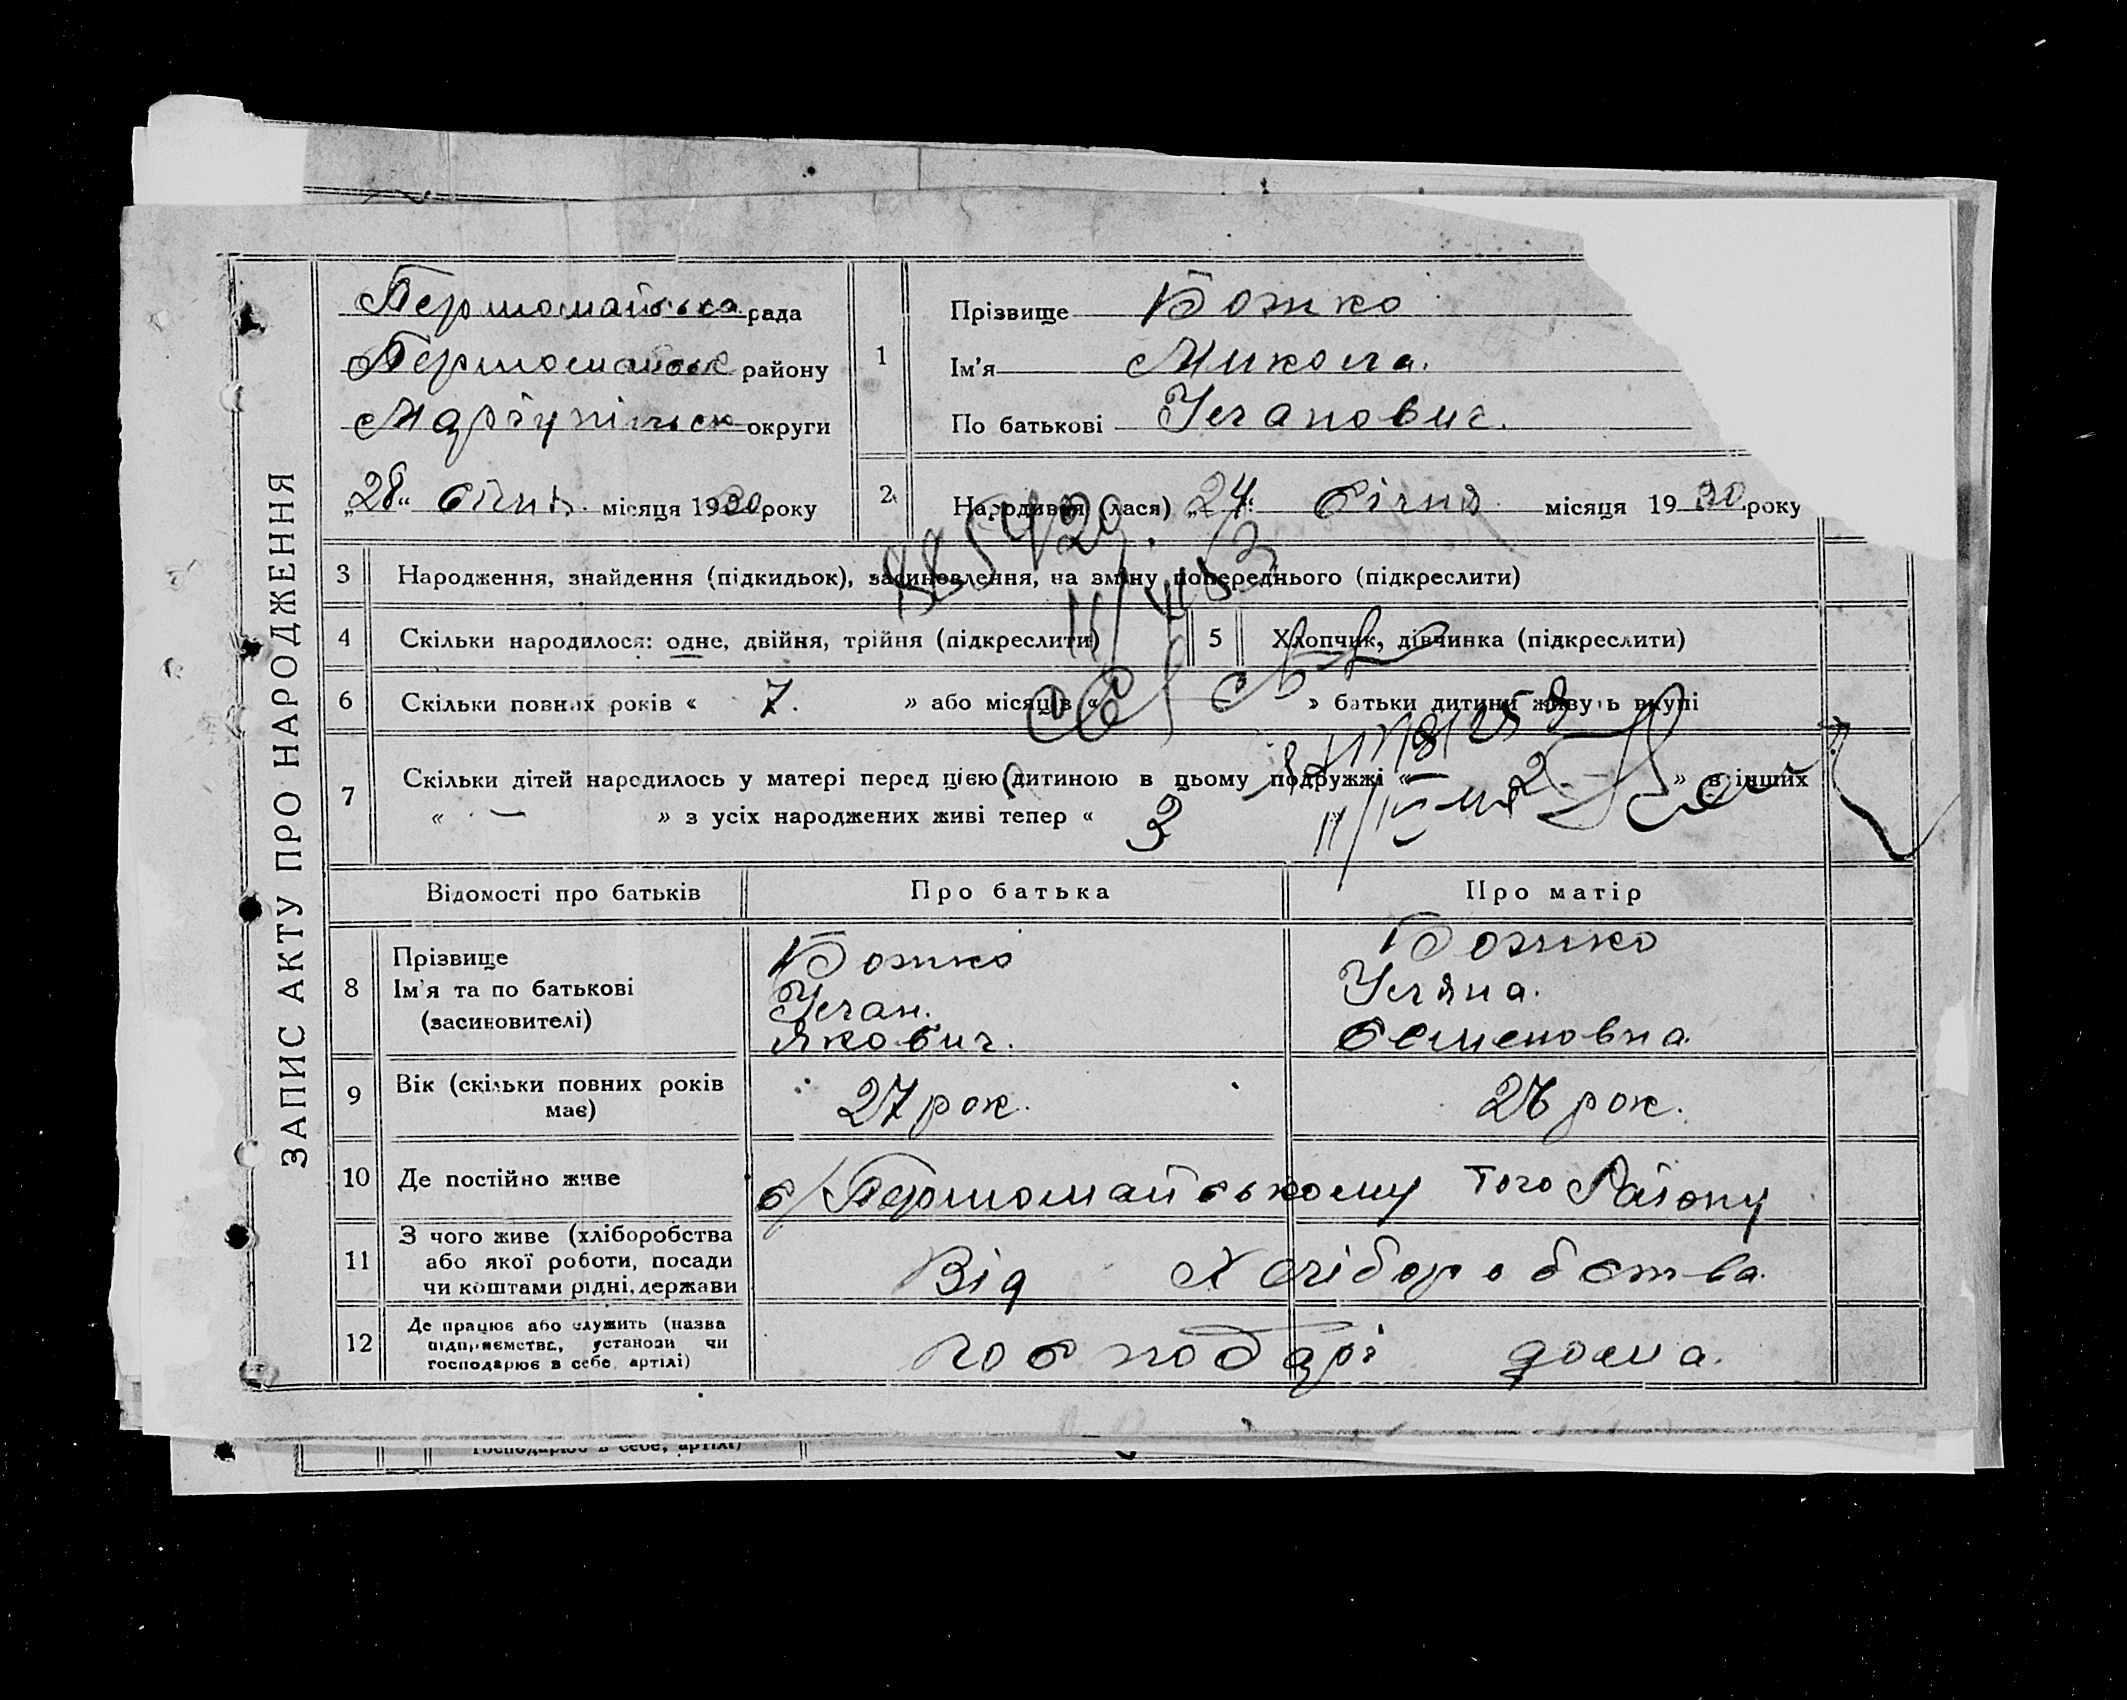 ЗАПИС АКТУ ПРО НАРОДЖЕННЯ
Першомайська рада
Першомайськ району
Маріупільськ округи
„28“ Січня місяця 1930 року
1
Прізвище Божко
Ім'я Микола.
По батькові Уланович.
2
Народився (лася) „24“ Січня місяця 1930 року
3 Народження, знайдення (підкидьок), засиновлення, на зміну попереднього (підкреслити)
4 Скільки народилося: одне, двійня, трійня (підкреслити) 5 Хлопчик, дівчинка (підкреслити)
6 Скільки повних років « 7. » або місяців « » батьки дитини живуть вкупі
7 Скільки дітей народилось у матері перед цією дитиною в цьому подружжі « 2 » в інших
« — » з усіх народжених живі тепер « 3
Відомості про батьків Про батька Про матір
8 Прізвище Божко Божко
Ім'я та по батькові Улан. Уляна.
(засиновителі) Якович. Семеновна
9 Вік (скільки повних років має) 27 рок. 26 рок.
10 Де постійно живе с/Першомайському того Району
11 З чого живе (хліборобства
або якої роботи, посади Від Хліборобства
чи коштами рідні, держави
12 Де працює або служить (назва
підприємства, установи чи господарі дома.
господарює в себе, артілі)
господарює в себе, артілі)